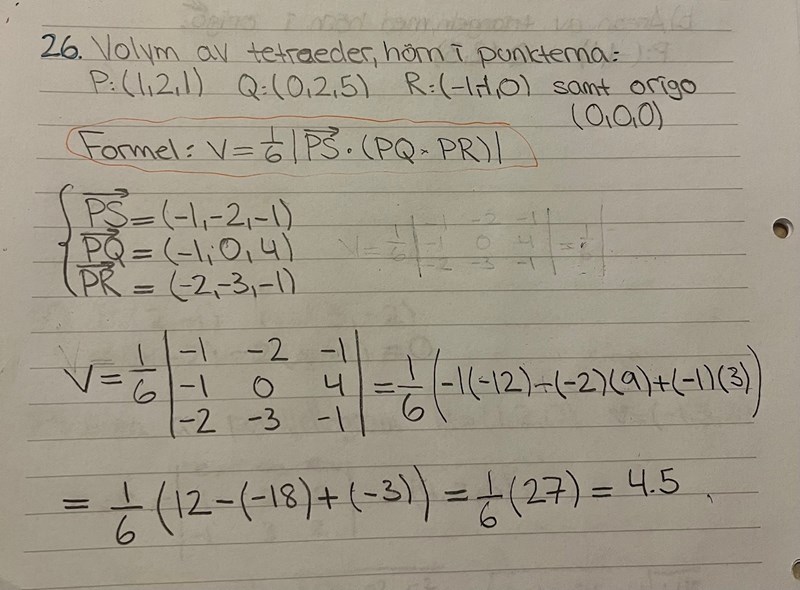 26. Volym av tetraeder, hörn i punkterna:
P:(1,2,1) Q:(0,2,5) R:(-1,-1,0) samt origo
(0,0,0)
Formel: V = 1/6 |PS · (PQ × PR)|
PS = (-1,-2,-1)
PQ = (-1,0,4)
PR = (-2,-3,-1)
V = 1/6 | -1 -2 -1 |
| -1 0 4 | = 1/6 (-1(-12) - (-2)(9) + (-1)(3))
| -2 -3 -1 |
= 1/6 (12 - (-18) + (-3)) = 1/6 (27) = 4.5